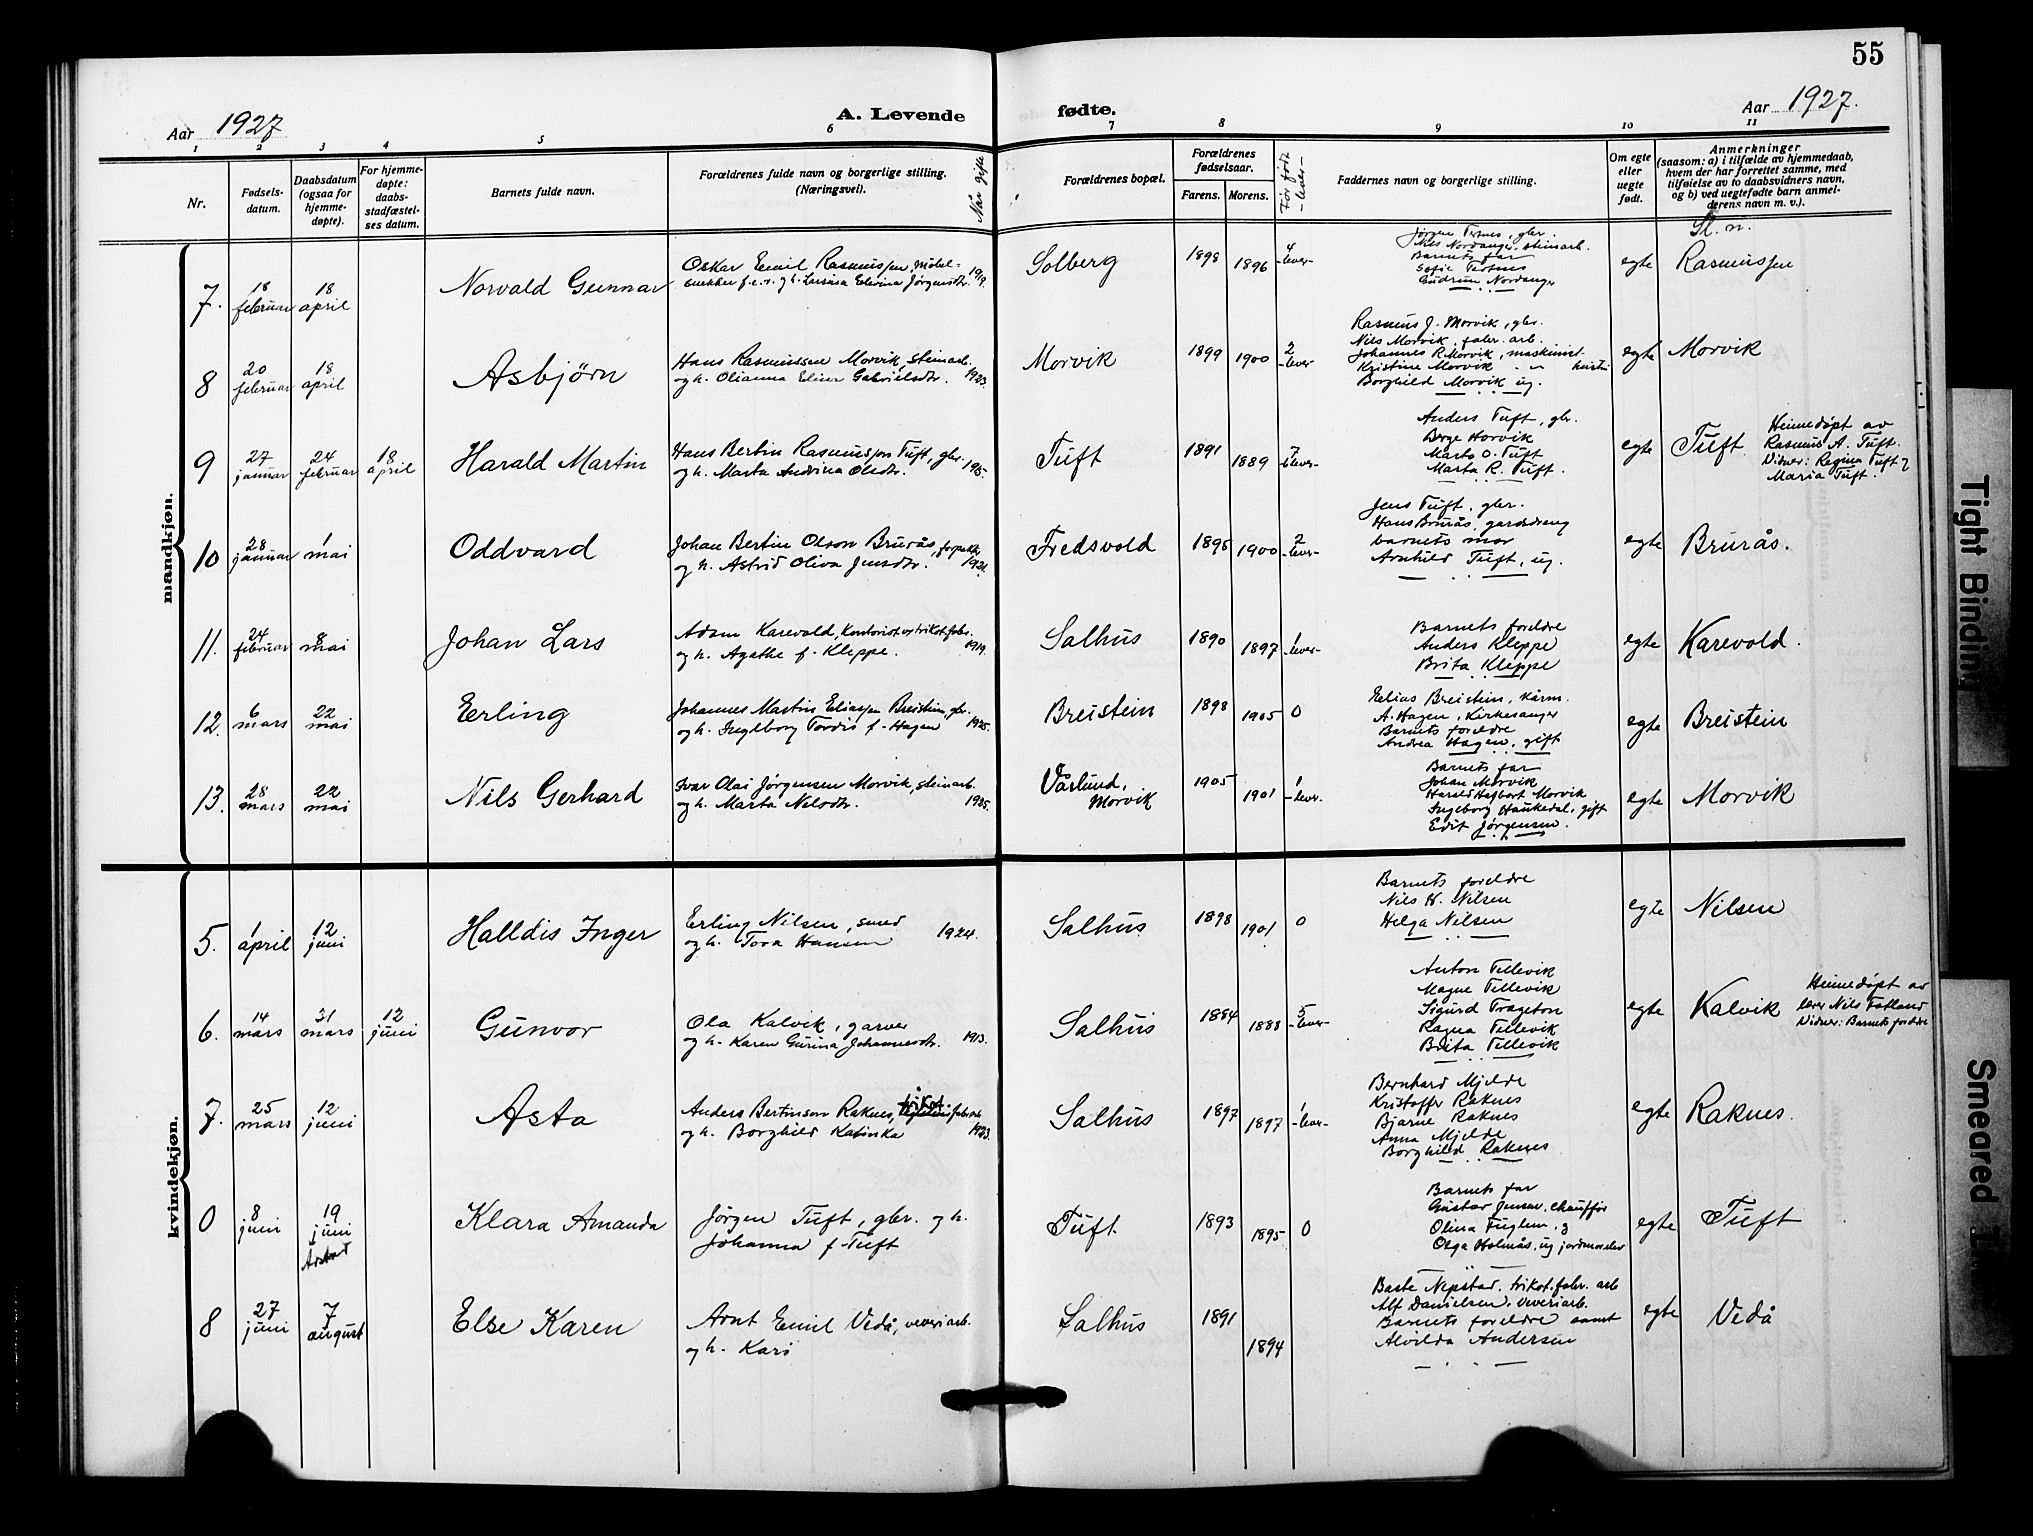 55
Aar 1927
A. Levende fødte.
Aar 1927.
1 2 3 4 5 6 7 8 9 10 11
Nr.
Fødsels-
datum.
Daabsdatum
(ogsaa for
hjemme-
døpte).
For hjemme-
døpte:
daabs-
stadfæstel-
ses datum.
Barnets fulde navn.
Forældrenes fulde navn og borgerlige stilling.
(Næringsvei).
Når gifte
Forældrenes bopæl.
Forældrenes
fødselsaar.
Farens. Morens.
Før fødte
- lever -
Faddernes navn og borgerlige stilling.
Om egte
eller
uegte
født.
Anmerkninger
(saasom: a) i tilfælde av hjemmedaab,
hvem der har forrettet samme, med
tilføielse av to daabsvidners navn,
og b) ved uegtefødte barn anmel-
derens navn m. v.).
Sl. n.
mandkjøn.
7. 18 februar 18 april Norvald Gunnar
Oskar Emil Rasmussen, møbel-
snekker f.e.s. og h. Larsina Elevina Jørgensdtr. 1919.
Solberg 1898 1896 4 -lever-
Jørgen Tertnes, gbr.
Nils Nordanger, steinarb.
Barnets far
Sofie Tertnes
Gudrun Nordanger
egte Rasmussen
8 20 februar 18 april Asbjørn
Hans Rasmussen Morvik, steinarb.
og h. Olianna Elina Gabrielsdtr. 1923.
Morvik 1899 1900 2 -lever
Rasmus J. Morvik, gbr.
Nils Morvik, fabr. arb.
Johannes R. Morvik, maskinist
Kristine Morvik - " - hustru
Borghild Morvik ug.
egte Morvik
9 27 januar 24 februar 18 april Harald Martin
Hans Bertin Rasmusson Tuft, gbr.
og h. Marta Andrina Olsdtr. 1915.
Tuft 1891 1889 7 -lever-
Anders Tuft, gbr.
Berge Horvik
Marto O. Tuft
Marta R. Tuft.
egte Tuft
Heimedøpt av
Rasmus A. Tuft.
Vidner: Regina Tuft og
Maria Tuft.
10 28 januar 1 mai Oddvard
Johan Bertin Olson Brurås, forpakter
og h. Astrid Oliva Jensdtr. 1921.
Fredsvold 1895 1900 2 -lever-
Jens Tuft, gbr.
Hans Brurås, gardsdreng
barnets mor
Arnhild Tuft, ug.
egte Brurås.
11. 24 februar 8 mai Johan Lars
Adam Karevold, kontorist v. trikot.fabr.
og h. Agathe f. Kleppe. 1919.
Salhus 1890 1897 1 -lever-
Barnets foreldre
Anders Kleppe
Brita Kleppe
egte Karevold.
12. 6 mars 22 mai Erling
Johannes Martin Eliassen Breistein, gbr.
og h. Ingeborg Tordis f. Hagen 1925.
Breistein 1898 1905 0
Eelias Breistein, kårm.
A. Hagen, kirkesanger
Barnets foreldre
Andrea Hagen, gift
egte Breistein
13. 28 mars 22 mai Nils Gerhard
Ivar Olai Jørgensen Morvik, steinarb.
og h. Marta Nilsdtr. 1925.
Vårlund,
Morvik 1905 1901 1 -lever.
Barnets far
Johan Morvik
Harald Hagbart Morvik
Ingeborg Haukedal, gift
Edit Jørgensen.
egte Morvik
kvindekjøn.
5. 1 april 12 juni Halldis Inger
Erling Nilsen, smed
og h. Tora Hansen 1924.
Salhus 1898 1901 0
Barnets foreldre
Nils H. Nilsen
Helga Nilsen
egte Nilsen
6. 14 mars 31 mars 12 juni Gunvor
Ola Kalvik, garver
og h. Karen Gurina Johannesdtr. 1913.
Salhus 1884 1888 5 -lever-
Anton Tellevik
Magne Tellevik
Sigurd Trageton
Ragna Tellevik
Brita Tellevik
egte Kalvik
Heimedøpt av
lærer Nils Fatland
Vidner: Barnets foreldre
7. 25 mars 12 juni Asta
Anders Bertinson Raknes, trikot.fabr.arb
og h. Borghild Katinka 1923.
Salhus 1897 1897 1 -lever-
Bernhard Mjelde
Kristoffer Raknes
Bjarne Raknes
Anna Mjelde
Borghild Raknes
egte Raknes.
0 8 juni 19 juni Klara Amanda
Jørgen Tuft, gbr. og h.
Johanna f. Tuft
Tuft 1893 1895 0
Barnets far
Gustav Jensen, chauffør
Olina Fuglem, og
Olga Holmås, ug jordmorelev
egte Tuft
8 27 juni 7 august Else Karen
Arnt Emil Vedå, veveriarb.
og h. Kari
Salhus 1891 1894
Baste Nepstad, trikot.fabr. arb
Alf Danielsen, veveriarb.
Barnets foreldre samt
Alvilda Andersen
egte Vedå
Tight Binding
Smeared